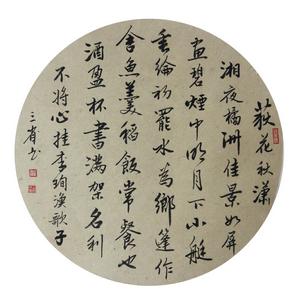 荻花秋潇
湘夜橘洲佳景如屏
画碧烟中明月下小艇
垂纶初罢水为乡篷作
舍鱼羹稻饭常餐也
酒盈杯书满架名利
不将心挂李珣渔歌子
三省书